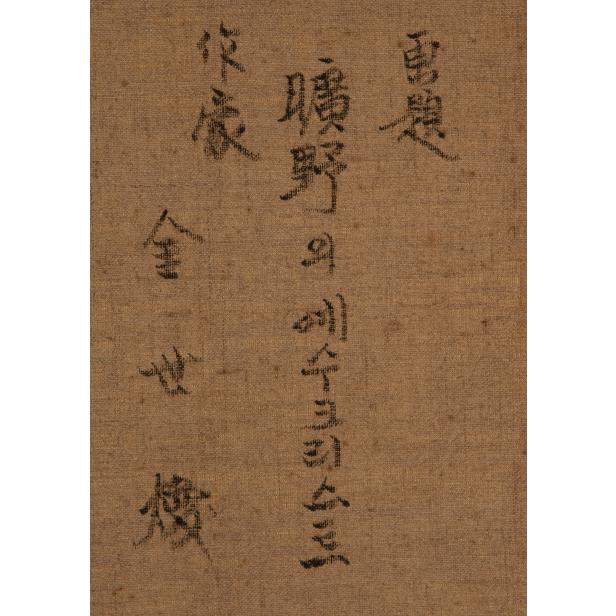 畫題
曠野의 예수크리스트
作家
金世